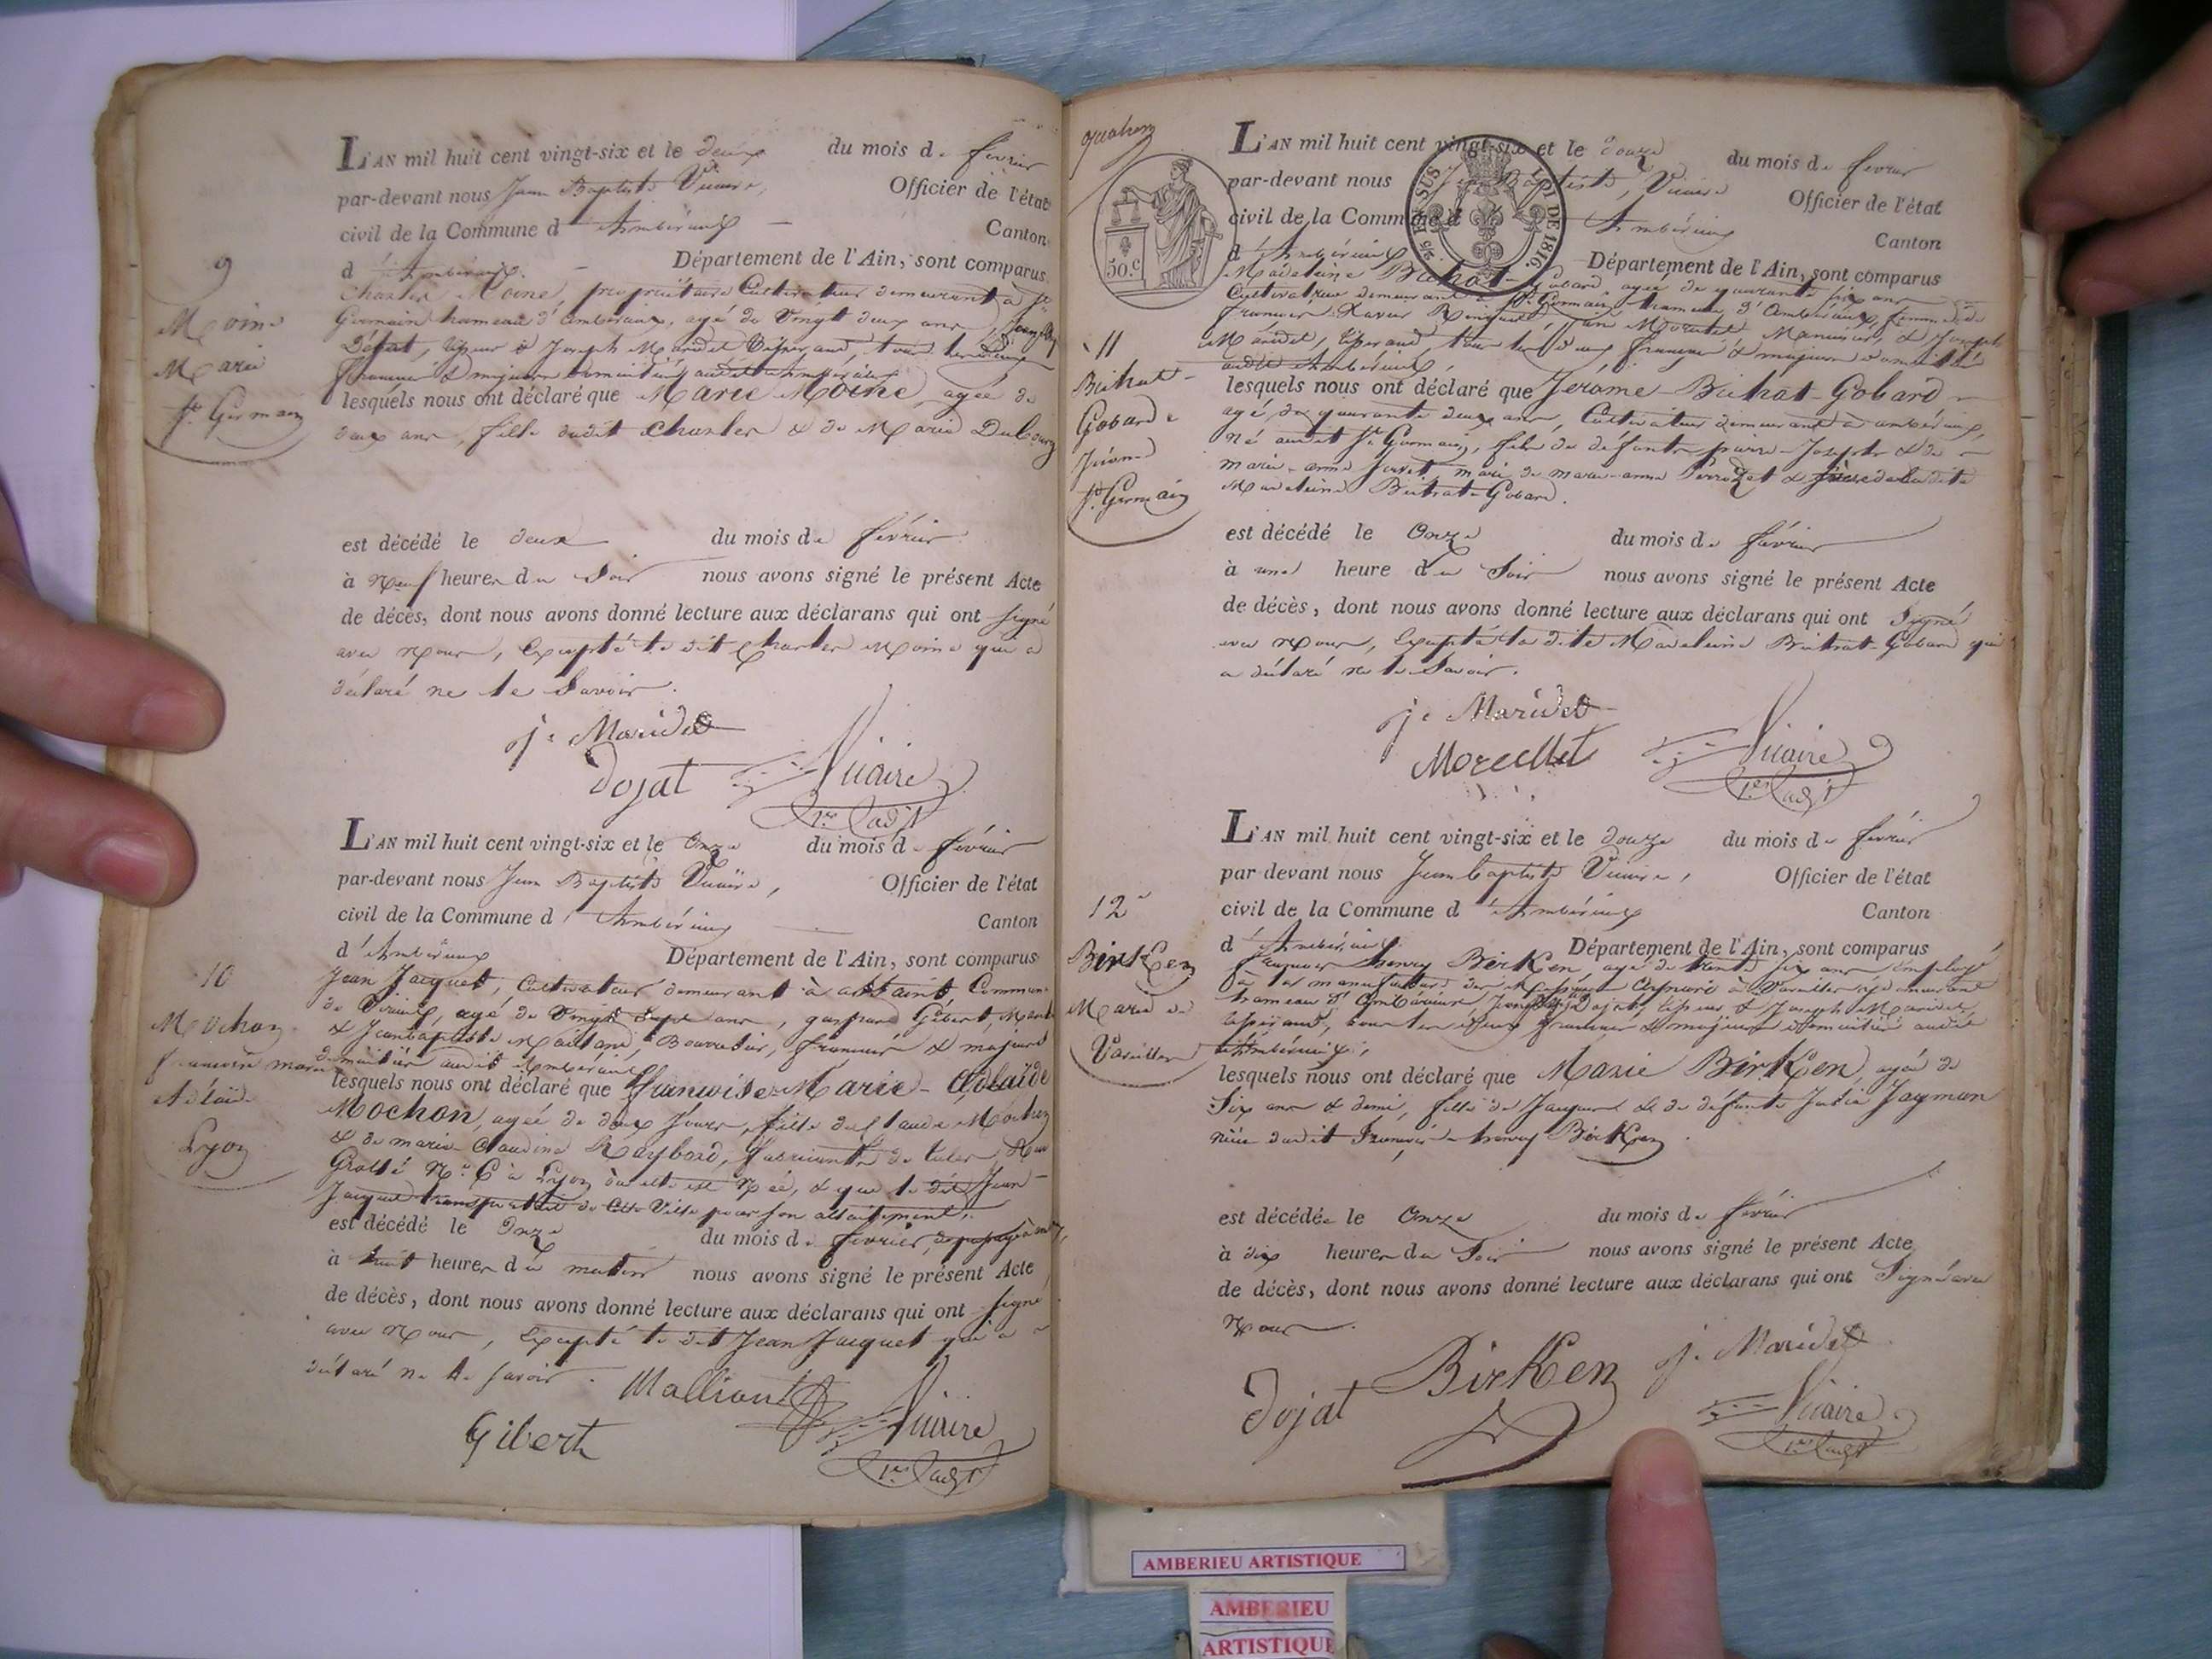 9
Moine
Marie
St. Germain
L'AN mil huit cent vingt-six et le deux du mois de février
par-devant nous Jean Baptiste Vicaire, Officier de l'état
civil de la Commune d'Ambérieux Canton
d'Ambérieux. Département de l'Ain, sont comparus
Charles Moine, propriétaire Cultivateur demeurant à St.
Germain hameau d'ambérieux, agé de Vingt deux ans,
Dojat, & Joseph Maridet tous les deux
français & majeurs domiciliés audit Ambérieux
lesquels nous ont déclaré que Marie Moine, agée de
deux ans, fille dudit Charles & de Marie Dubourg
est décédé le deux du mois de février
à Neuf heures du Soir nous avons signé le présent Acte
de décès, dont nous avons donné lecture aux déclarans qui ont signé
avec Nous, Excepté le dit Charles Moine qui a
déclaré ne le Savoir.
j. Maridet
Dojat Vicaire
1er adjt
10
Mochon
françoise marie
Adélaïde
Lyon
L'AN mil huit cent vingt-six et le Onze du mois de février
par-devant nous Jean Baptiste Vicaire, Officier de l'état
civil de la Commune d'Ambérieux Canton
d'Ambérieux Département de l'Ain, sont comparus
Jean Jacquet, Cultivateur demeurant à Commune
de agé de Vingt sept ans, gaspard Gibert,
& Jeanbaptiste français & majeurs
domiciliés audit Ambérieux
lesquels nous ont déclaré que françoise-Marie-Adélaïde
Mochon, agée de deux jours, fille de Claude Mochon
& de marie Claudine Raybord, de tulle, Rue
Grollé No. 6 à Lyon où elle est Née, & que le dit Jean
Jacquet de cette Ville pour son allaitement,
est décédé le Onze du mois de février,
à huit heures du matin nous avons signé le présent Acte
de décès, dont nous avons donné lecture aux déclarans qui ont signé
avec Nous, Excepté le dit Jean Jacquet qui a
déclaré ne le savoir.
Malliant
Gibert Vicaire
1er adjt
50.c
EN SUS
LOI DE 1816
11
Buthat
Gobard
Jérôme
St. Germain
L'AN mil huit cent vingt-six et le douze du mois de février
par-devant nous Jean Baptiste, Vicaire Officier de l'état
civil de la Commune d'Ambérieux Canton
d'Ambérieux Département de l'Ain, sont comparus
Madeleine Buthat-Gobard, agée de quarante six ans
Cultivatrice demeurant à St. Germain, hameau d'Ambérieux, femme de
françois Xavier & Joseph
Maridet, tous les deux français & majeurs domiciliés
audit Ambérieux,
lesquels nous ont déclaré que Jerôme-Buthat-Gobard
agé, de quarante deux ans, Cultivateur demeurant à ambérieux,
né audit St. Germain, fils de défunts pierre-Joseph & de
marie-anne mari de marie-anne & frère de ladite
Madeleine Buthat-Gobard.
est décédé le Onze du mois de février
à une heure du Soir nous avons signé le présent Acte
de décès, dont nous avons donné lecture aux déclarans qui ont Signé
avec Nous, Excepté la dite Madeleine Buthat-Gobard qui
a déclaré ne le Savoir.
j. Maridet
Morellet Vicaire
1er adjt
12
BirKen
Marie
Vareilles
L'AN mil huit cent vingt-six et le douze du mois de février
par devant nous Jean baptiste Vicaire, Officier de l'état
civil de la Commune d'Ambérieux Canton
d'Ambérieux Département de l'Ain, sont comparus
françois henry BirKen, agé de trente six ans Employé
à la manufacture de à Vareilles y demeurant
hameau d'Ambérieux, Dojat, & Joseph Maridet,
tous les deux français & majeurs domiciliés audit
Ambérieux,
lesquels nous ont déclaré que Marie BirKen, agée de
Six ans & demi, fille de Jacques & de défunte Julie Jayman
nièce dudit françois-henry BirKen.
est décédée le Onze du mois de février
à dix heures du Soir nous avons signé le présent Acte
de décès, dont nous avons donné lecture aux déclarans qui ont Signé avec
Nous.
Dojat BirKen j. Maridet
Vicaire
1er adjt
AMBERIEU ARTISTIQUE
AMBERIEU
ARTISTIQUE